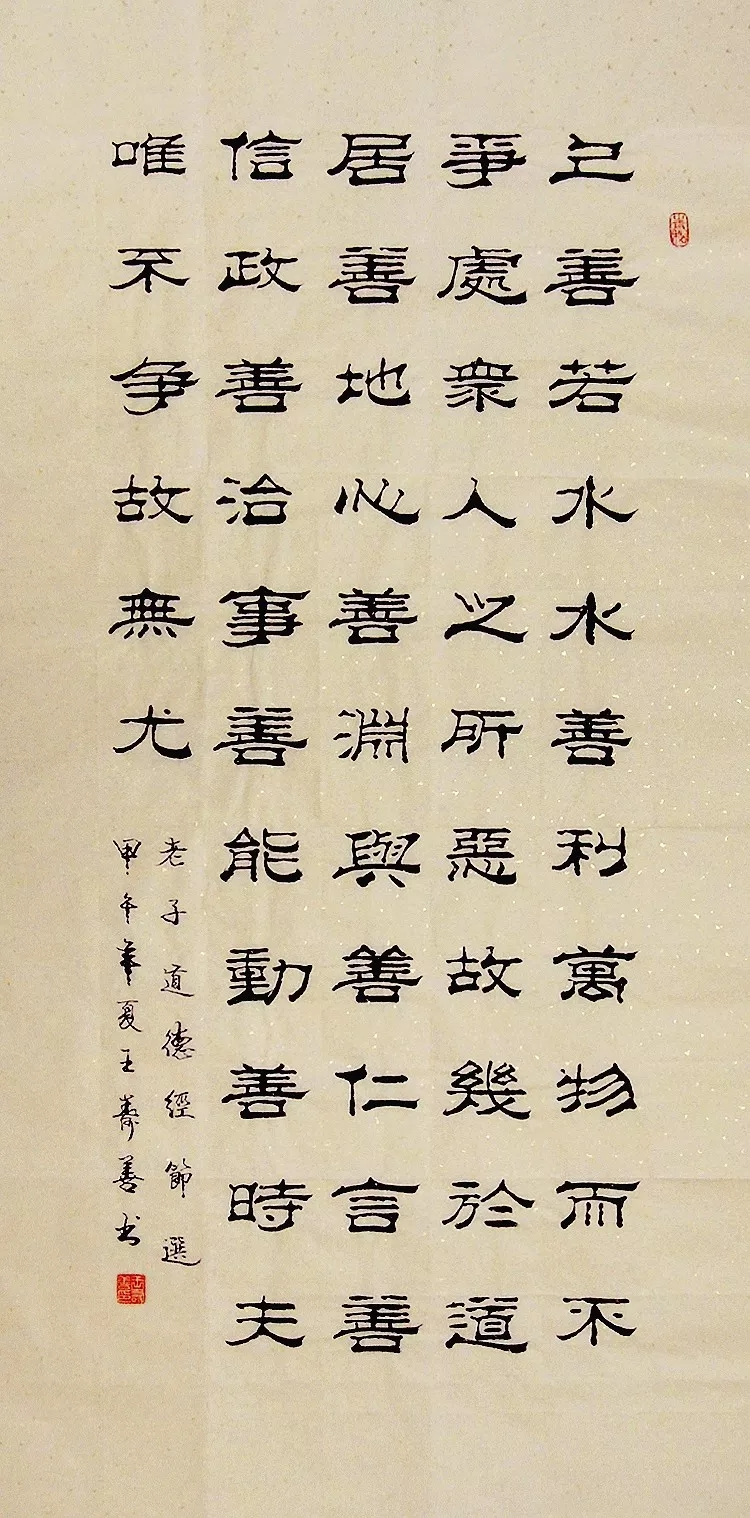 上善若水水善利萬物而不
爭處衆人之所惡故幾於道
居善地心善淵與善仁言善
信政善治事善能動善時夫
唯不争故無尤
老子道德經節選
甲午年夏王壽善书